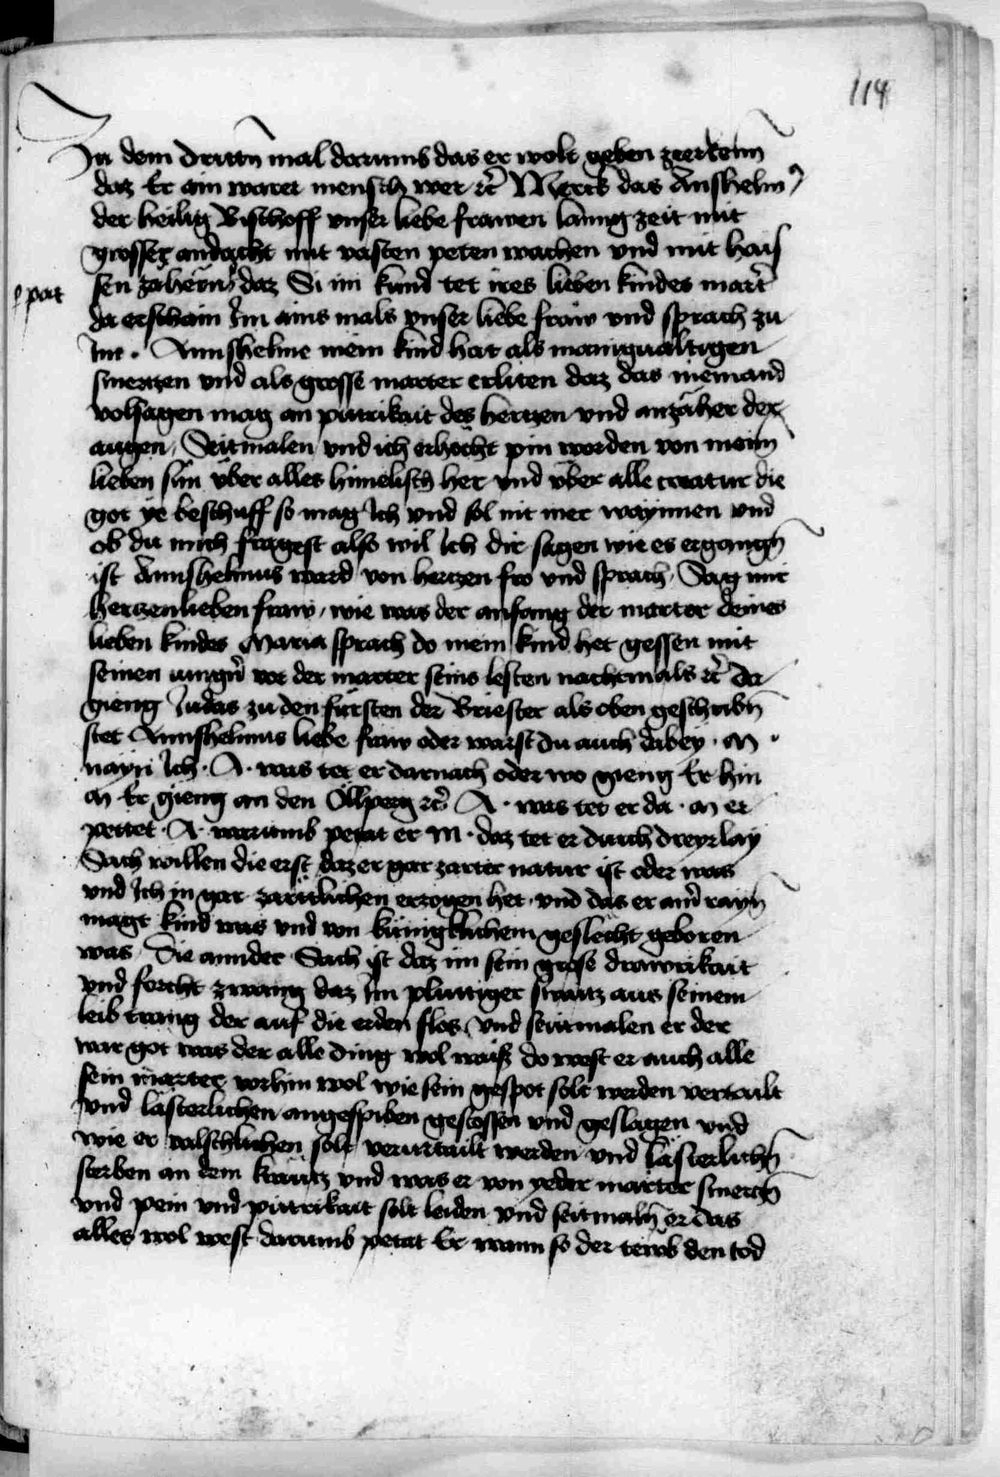 114
In dem dritten mal darumb das er wolt geben zeerkenn̄
daz Er ain warer mensch wer ec̄ Merck das Anshelm9
der heilig Bischoff vnser liebe frawen lanng zeit mit
grosser andacht mit vasten peten wachen vnd mit hais
sen zähern daz Si im kund tet ires lieben kindes mart̄
pat
da erschain Im ains mals vnser liebe fraw vnd sprach zu
Im . Annshelme mein kind hat als manigualtigen
smertzen vnd als grosse marter erliten daz das niemand
volsagen mag an pittrikait des hertzen vnd an zäher der
augen, Seitmalen vnd ich erhöcht pin worden von meim
lieben sun über alles himelisch her vnd über alle creatur die
got ye beschuff so mag Ich vnd sol nit mer waÿnnen vnd
ob du mich fragest also wil Ich dir sagen wie es ergangn̄
ist Annshelmus ward von hertzen fro vnd sprach, Sag mir
hertzenlieben fraw, wie was der anfang der marter deines
lieben kindes Maria sprach do mein kind het gessen mit
seinen iungn̄ vor der marter seins lesten nachtmals ec̄ Da
gieng Judas zu den fürsten der Briester als oben geschribn̄
stet Annshelmus liebe fraw oder warst du auch dabeÿ . M .
naÿn Ich . A . was tet er darnach oder wo gieng Er hin
M Er gieng an den Ölperg ec̄ A . was tet er da . M er
pettet . A . warumb petat er M . daz tet er durch dreyrlay
Sach willen die erst daz er gar zarter natur ist oder was
vnd Ich in gar zärtlichen erzogen het, vnd das er ain̄ rayn̄
magt kind was vnd von künigklichem geslächt geboren
was, Die annder Sach ist daz im sein grose drawrikait
vnd forcht zwang daz Im pluttiger swaitz aus seinem
leib trang der auf die erden flos, Vnd seitmalen er der
war got was der alle ding wol waiß do west er auch alle
sein marter vorhin wol wie sein gespot solt werden vertailt
vnd lästerlichen angespiben gestossen vnd geslagen vnd
wie er valschlichen solt verurtailt werden vnd lästerlichn̄
sterben an dem kräutz vnd was er von yeder marter smerczn̄
vnd pein vnd pittrikait solt leiden vnd seitmaln̄ er das
alles wol west darumb petat Er wann so der den tod